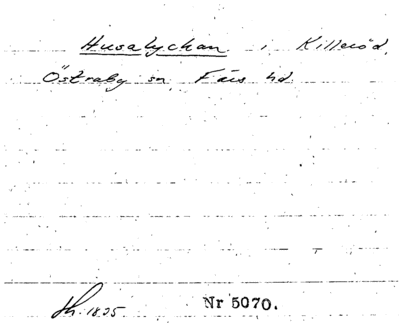 Husalychan i Killeröd,
Östraby sn, Färs hd.
Sk. 1825 Nr 5070.